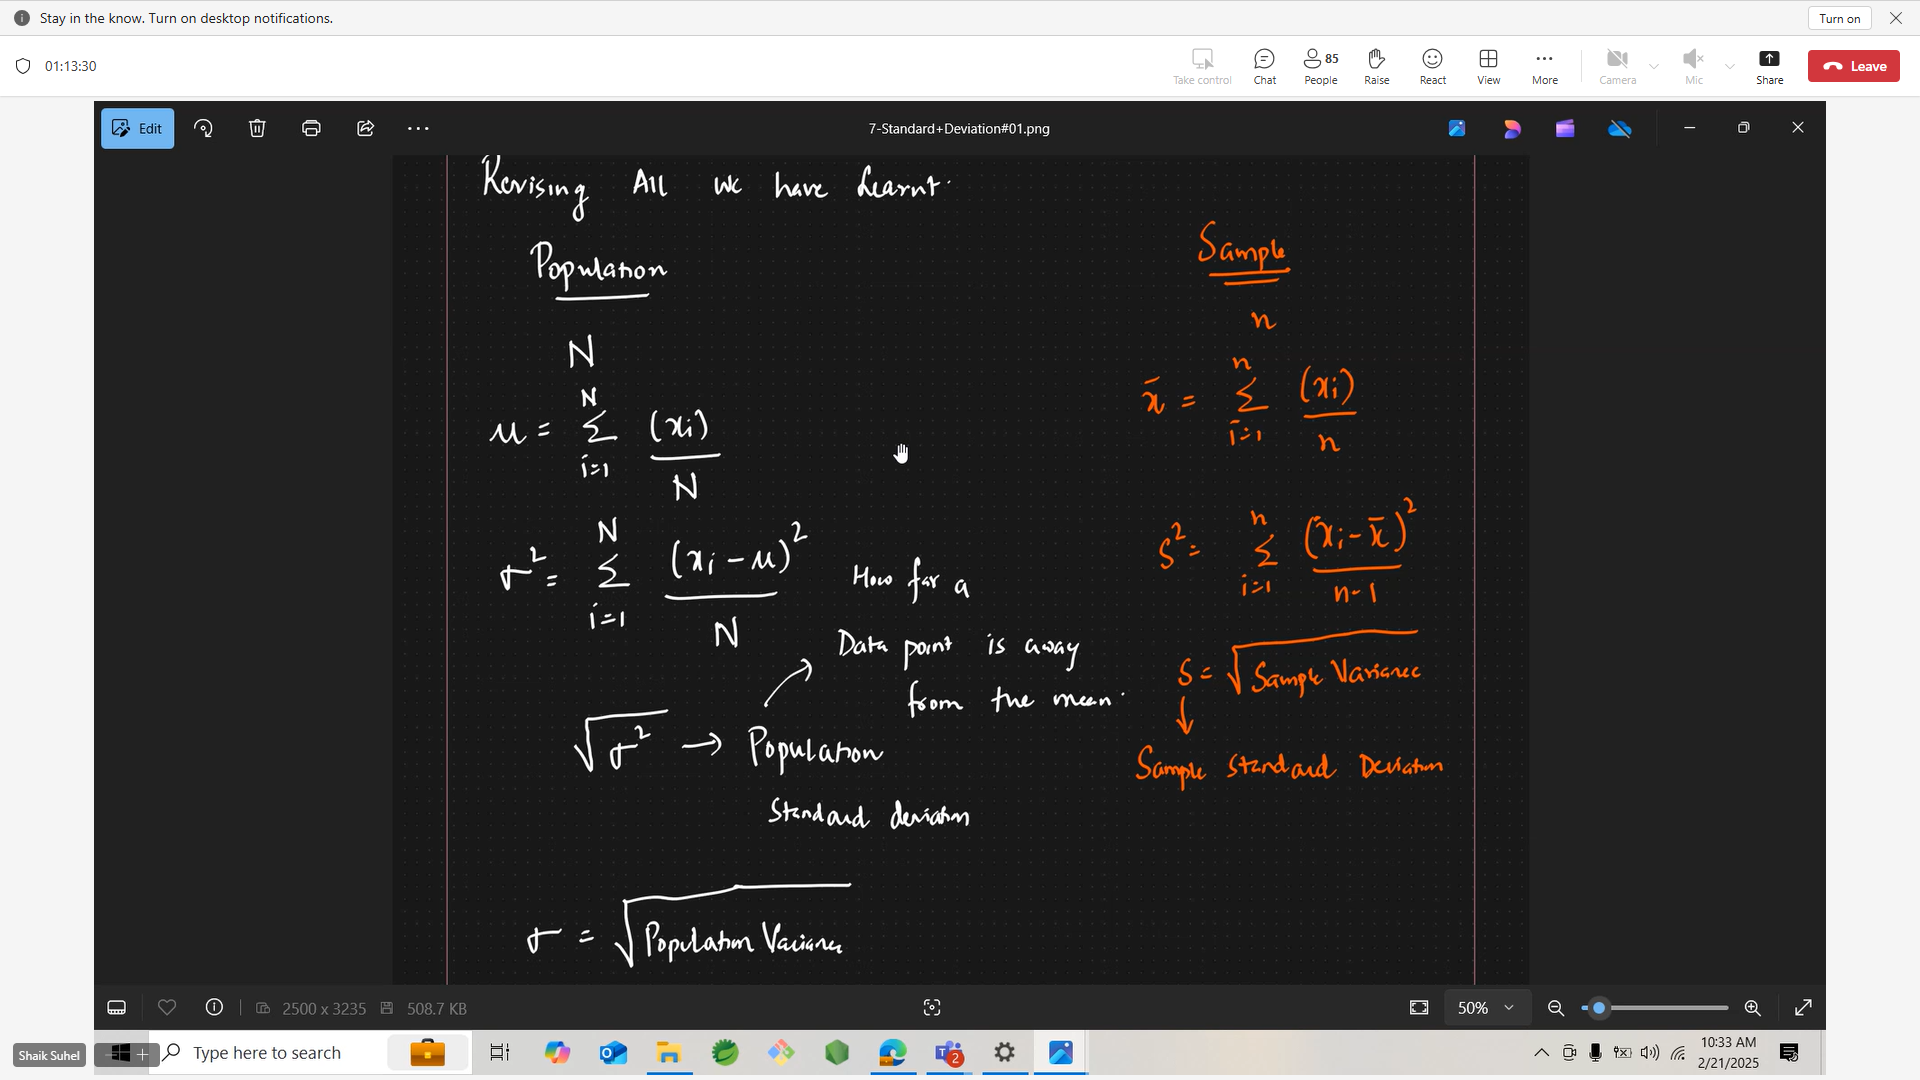 Stay in the know. Turn on desktop notifications.
Turn on
01:13:30
Take control
Chat
85
People
Raise
React
View
More
Camera
Mic
Share
Leave
Edit
7-Standard+Deviation#01.png
Revising All we have learnt.
Population
N
μ = N Σ i=1 (xi) / N
σ² = N Σ i=1 (xi - μ)² / N
How far a
Data point is away
from the mean.
√σ² → Population
Standard deviation
σ = √Population Variance
Sample
n
x̄ = n Σ i=1 (xi) / n
s² = n Σ i=1 (xi - x̄)² / n-1
s = √Sample Variance
Sample Standard Deviation
2500 x 3235
508.7 KB
50%
Shaik Suhel
Type here to search
2
10:33 AM
2/21/2025